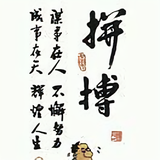 拼搏
谋事在人 不懈努力
成事在天 辉煌人生